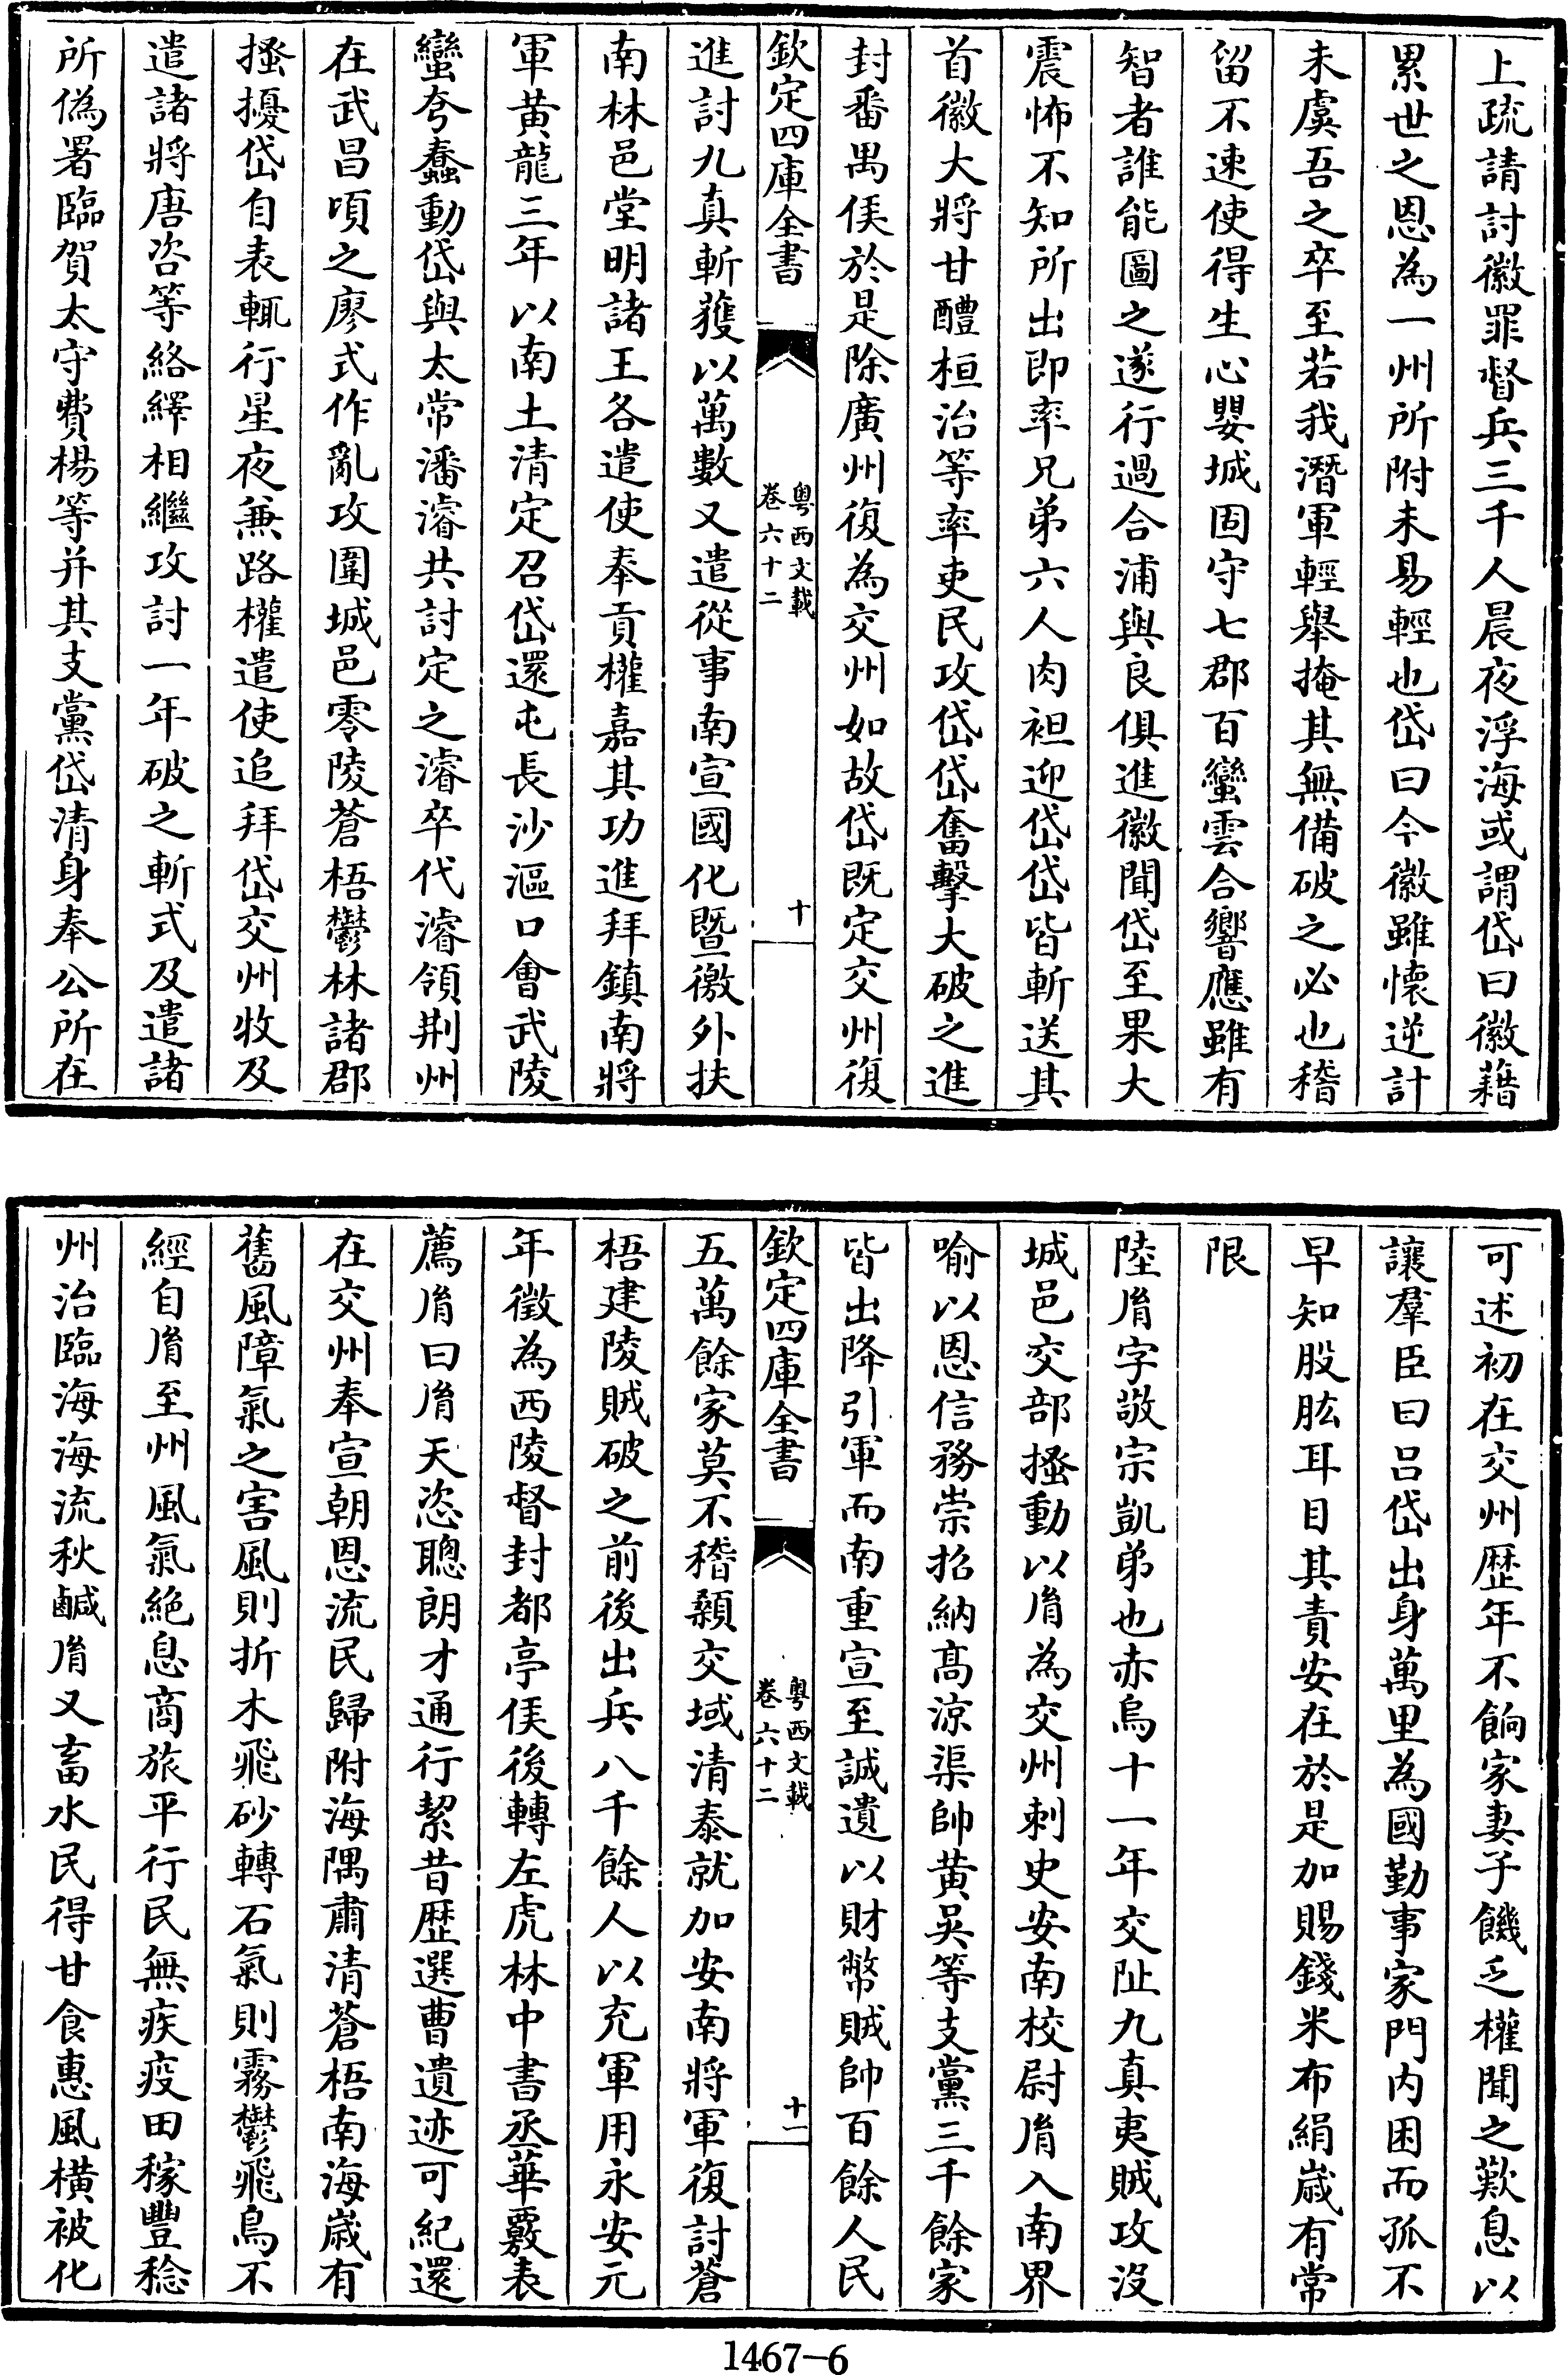 上疏請討徽罪督兵三千人晨夜浮海或謂岱曰徽藉
累世之恩為一州所附未易輕也岱曰今徽雖懷逆計
未虞吾之卒至若我潛軍輕舉掩其無備破之必也稽
留不速使得生心嬰城固守七郡百蠻雲合響應雖有
智者誰能圖之遂行過合浦與良俱進徽聞岱至果大
震怖不知所出即率兄弟六人肉袒迎岱岱皆斬送其
首徽大將甘醴桓治等率吏民攻岱岱奮擊大破之進
封番禺侯於是除廣州復為交州如故岱既定交州復
欽定四庫全書
粵西文載
卷六十二
十
進討九真斬獲以萬數又遣從事南宣國化暨徼外扶
南林邑堂明諸王各遣使奉貢權嘉其功進拜鎮南將
軍黃龍三年以南土清定召岱還屯長沙漚口會武陵
蠻夸蠢動岱與太常潘濬共討定之濬卒代濬領荆州
在武昌頃之廖式作亂攻圍城邑零陵蒼梧鬱林諸郡
搔擾岱自表輒行星夜兼路權遣使追拜岱交州牧及
遣諸將唐咨等絡繹相繼攻討一年破之斬式及遣諸
所偽署臨賀太守費楊等并其支黨岱清身奉公所在
可述初在交州歷年不餉家妻子饑乏權聞之歎息以
讓羣臣曰吕岱出身萬里為國勤事家門内困而孤不
早知股肱耳目其責安在於是加賜錢米布絹歲有常
限
陸胤字敬宗凱弟也赤烏十一年交阯九真夷賊攻沒
城邑交部搔動以胤為交州刺史安南校尉胤入南界
喻以恩信務崇招納高涼渠帥黃吳等支黨三千餘家
皆出降引軍而南重宣至誠遺以財幣賊帥百餘人民
欽定四庫全書
粵西文載
卷六十二
十一
五萬餘家莫不稽顙交域清泰就加安南將軍復討蒼
梧建陵賊破之前後出兵八千餘人以充軍用永安元
年徵為西陵督封都亭侯後轉左虎林中書丞華覈表
薦胤曰胤天恣聰朗才通行絜昔歷選曹遺迹可紀還
在交州奉宣朝恩流民歸附海隅肅清蒼梧南海歲有
舊風障氣之害風則折木飛砂轉石氣則霧鬱飛鳥不
經自胤至州風氣絶息商旅平行民無疾疫田稼豐稔
州治臨海海流秋鹹胤又畜水民得甘食惠風橫被化
1467-6